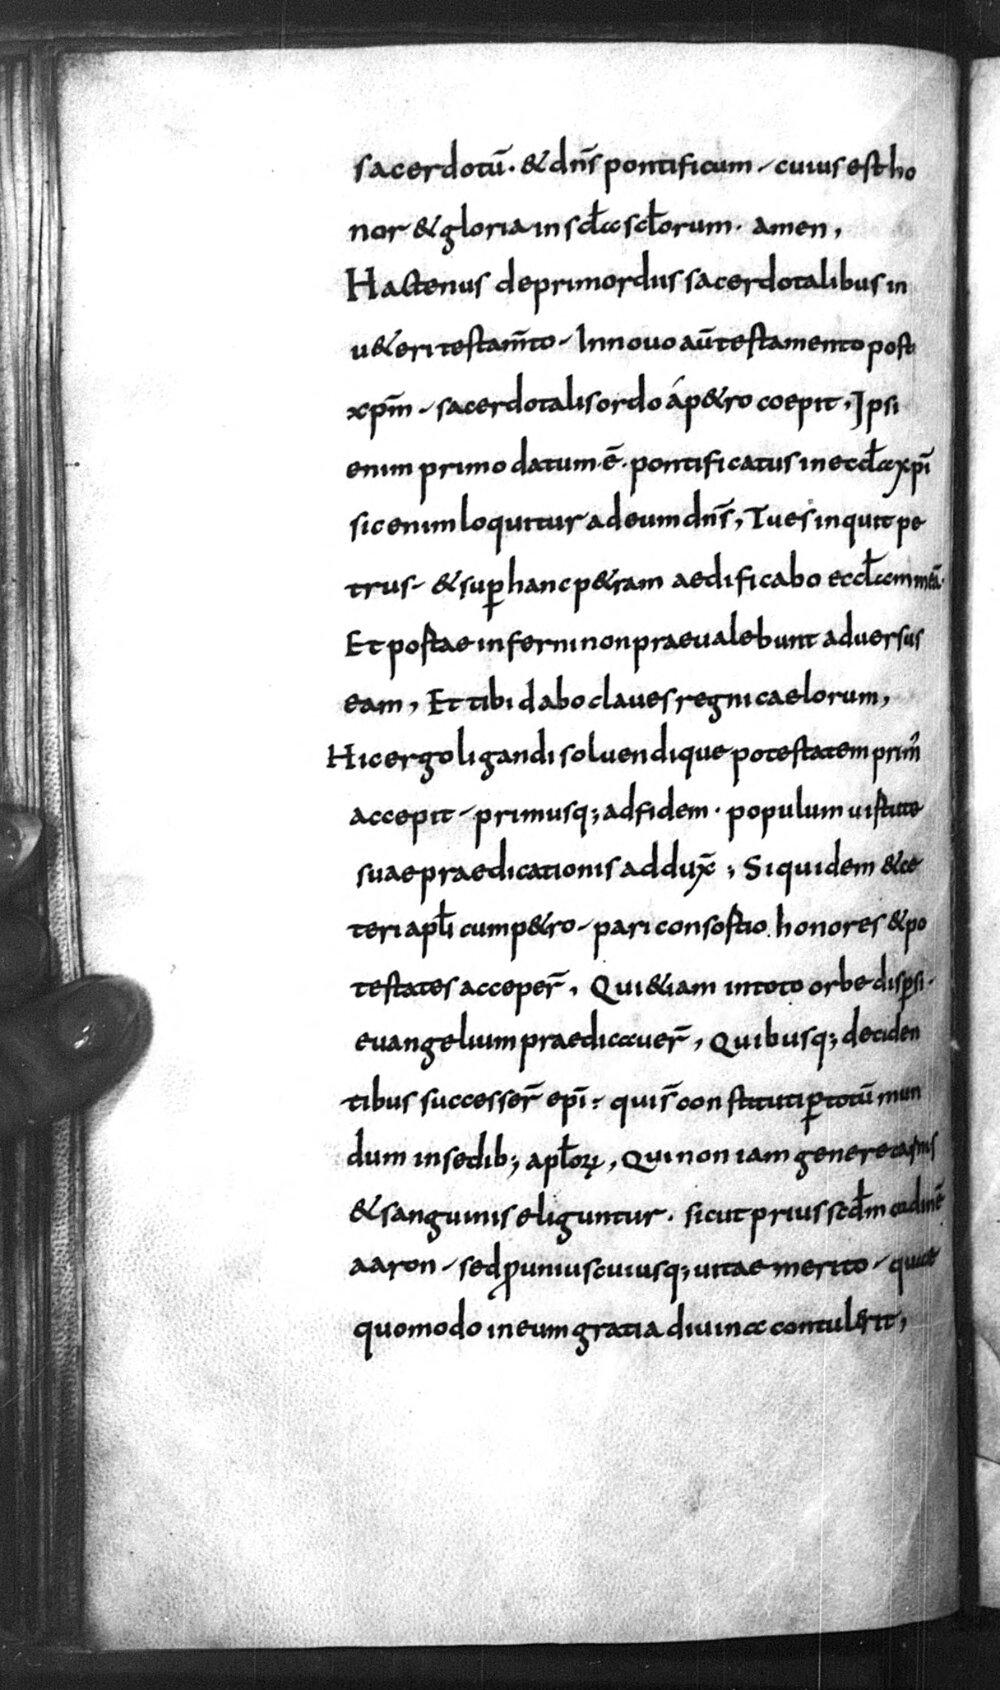 sacerdotū· & dn̄s pontificum, cuius est ho
nor & gloria in sc̄la sc̄lorum· amen,
Hactenus de primordiis sacerdotalibus in
u&eri testam̄to, In nouo aū testamento post
xp̄m, sacerdotalis ordo á p&ro coepit, Ipsi
enim primo datum· ē· pontificatus in eccƚa xp̄i
sic enim loquitur ad eum dn̄s, Tu es inquit pe
trus, & suꝑ hanc p&ram aedificabo eccƚam meā·
Et postae inferni non praeualebunt aduersus
eam, Et tibi dabo claues regni caelorum,
Hic ergo ligandi soluendique potestatem prim̓
accepit, primusq; ad fidem· populum uirtute
suae praedicationis addux̄; Siquidem & ce
teri apƚi cum p&ro, pari consortio honores & po
testates acceper̄, Qui &iam in toto orbe disꝑsi·
euangelium praedicauer̄, Quibusq; deciden
tibus successer̄ ep̄i, qui s̄ constituti ꝑ totū mun
dum in sedib; apƚoꝝ, Qui non iam genere carnis
& sanguinis eliguntur· sicut prius scdm̄ ordinē
aaron, sed ꝓ uniuscuiusq; uitae merito, quae
quomodo in eum gratia diuina contulerit,